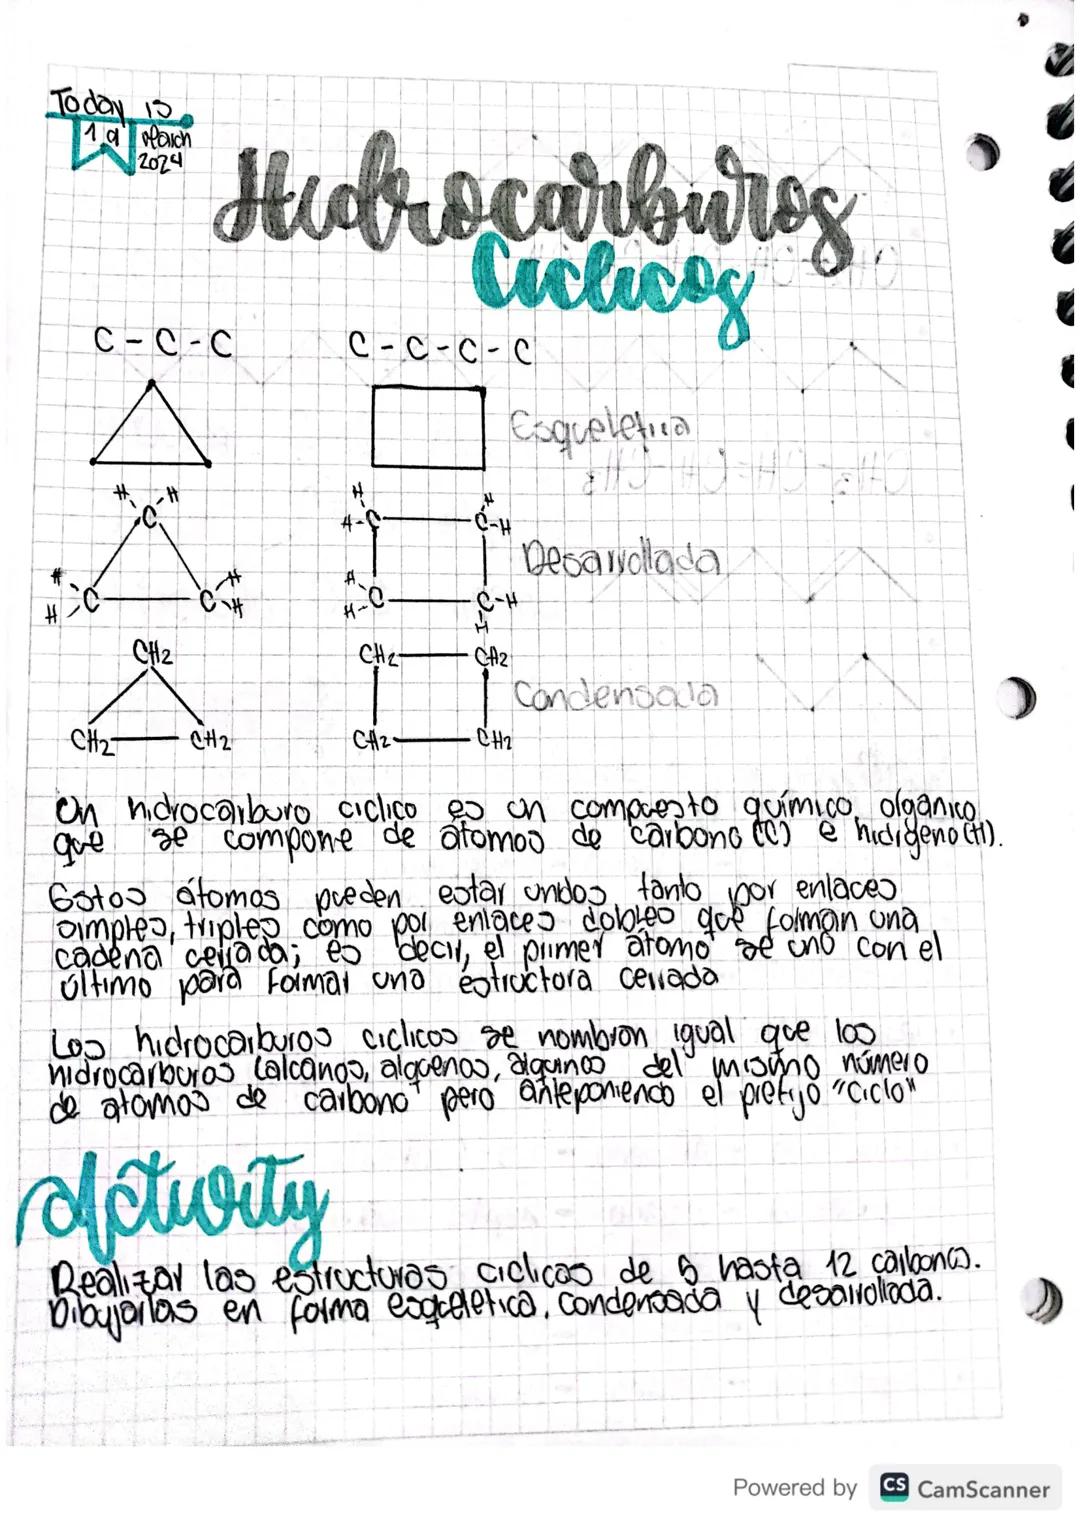 Today is
19 March
2024
Hidrocarburos
Ciclicos
C - C - C
C - C - C - C
Esqueletica
H H
C
H
H C
C H
H
H
H-C
H
C-H
Desarrollada
H
H-C
C-H
H
CH2
CH2 CH2
CH2 CH2
CH2 CH2
Condensada
Un hidrocarburo ciclico es un compuesto químico, orgánico,
que se compone de átomos de carbono (C) e hidrígeno (H).
Estos átomos pueden estar unidos tanto por enlaces
simples, triples como por enlaces dobles que forman una
cadena cerrada; es decir, el primer átomo se une con el
último para formar una estructura cerrada
Los hidrocarburos ciclicos se nombran igual que los
hidrocarburos (alcanos, alquenos, alquinos del mismo número
de atomos de carbono pero anteponiendo el prefijo "ciclo"
Activity
Realizar las estructuras ciclicas de 5 hasta 12 carbonos.
Dibujarlas en forma esqueletica, condensada y desarrollada.
Powered by CS CamScanner